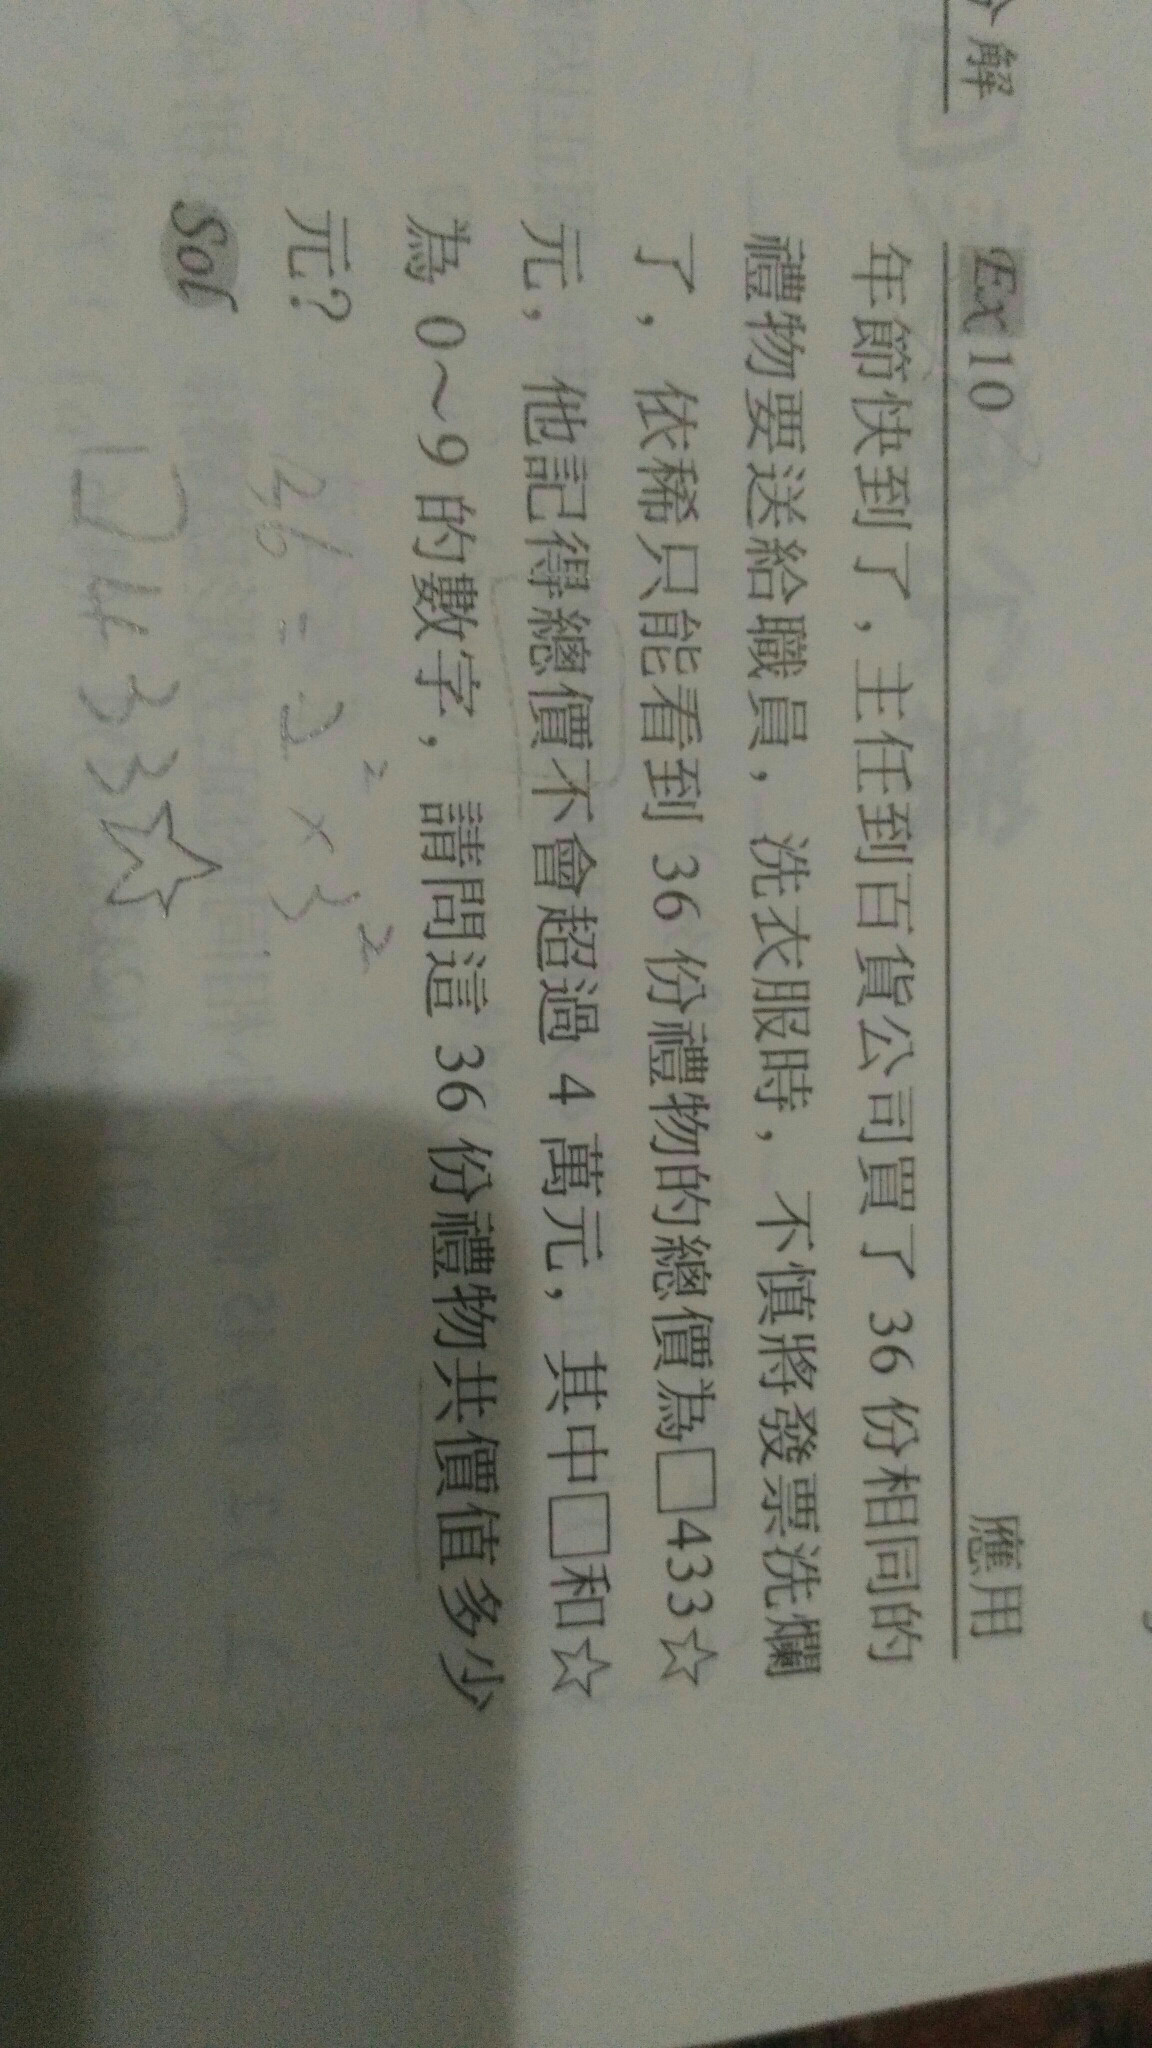 分解
Ex 10
應用
年節快到了，主任到百貨公司買了 36 份相同的
禮物要送給職員，洗衣服時，不慎將發票洗爛
了，依稀只能看到 36 份禮物的總價為□433☆
元，他記得總價不會超過 4 萬元，其中□和☆
為 0～9 的數字，請問這 36 份禮物共價值多少
元？
Sol
36 = 2² × 3²
□433☆